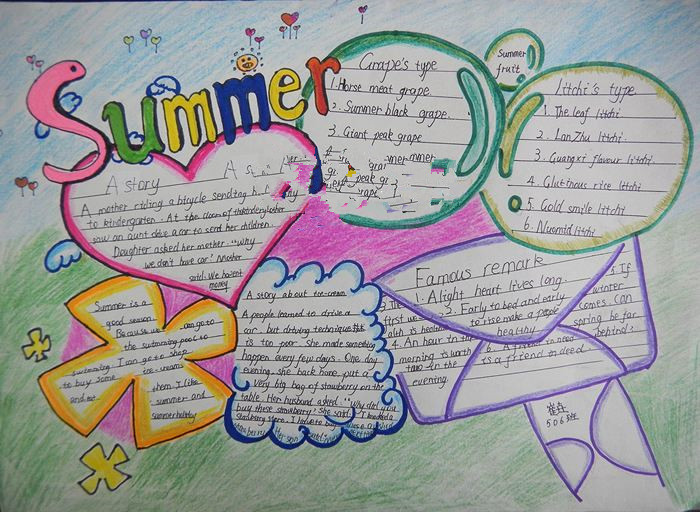 Summer
Grape's type
1. Horse meat grape.
2. Summer black grape.
3. Giant peak grape
Summer
fruit
Litchi's type
1. The leaf litchi
2. Lan Zhu litchi
3. Guangxi flavour litchi
4. Glutinous rice litchi
5. Gold smile litchi
6. Nuomid litchi
A story
A mother riding a bicycle sending
to kindergarten. At the
saw an aunt drive a car to send her children.
Daughter asked her mother: "why
we don't have car? Mother
said: We havent
money
Famous remark
1. A light heart lives long
2. Early to bed and early
to rise make a
healthy
4. An hour in the
morning is worth
two in the
evening.
5. If
winter
comes. can
spring be far
behind?
6. A
need
is a friend in deed
Summer is a
good season
Because we can go to
the swimming pool so
swimming I can go to shop
to buy some ice-creams
and eat them. I like
summer and
summer holiday
A story about ice-cream
A people learned to drive a
car. but driving technique
is too poor. She made something
happen every few days. One day
evening. she back home. put a
Very big bag of strawberry on the
table. Her husband asked: "why did you
buy these strawberry? She said: "I
strawberry store. I have to buy
崔垚
506班